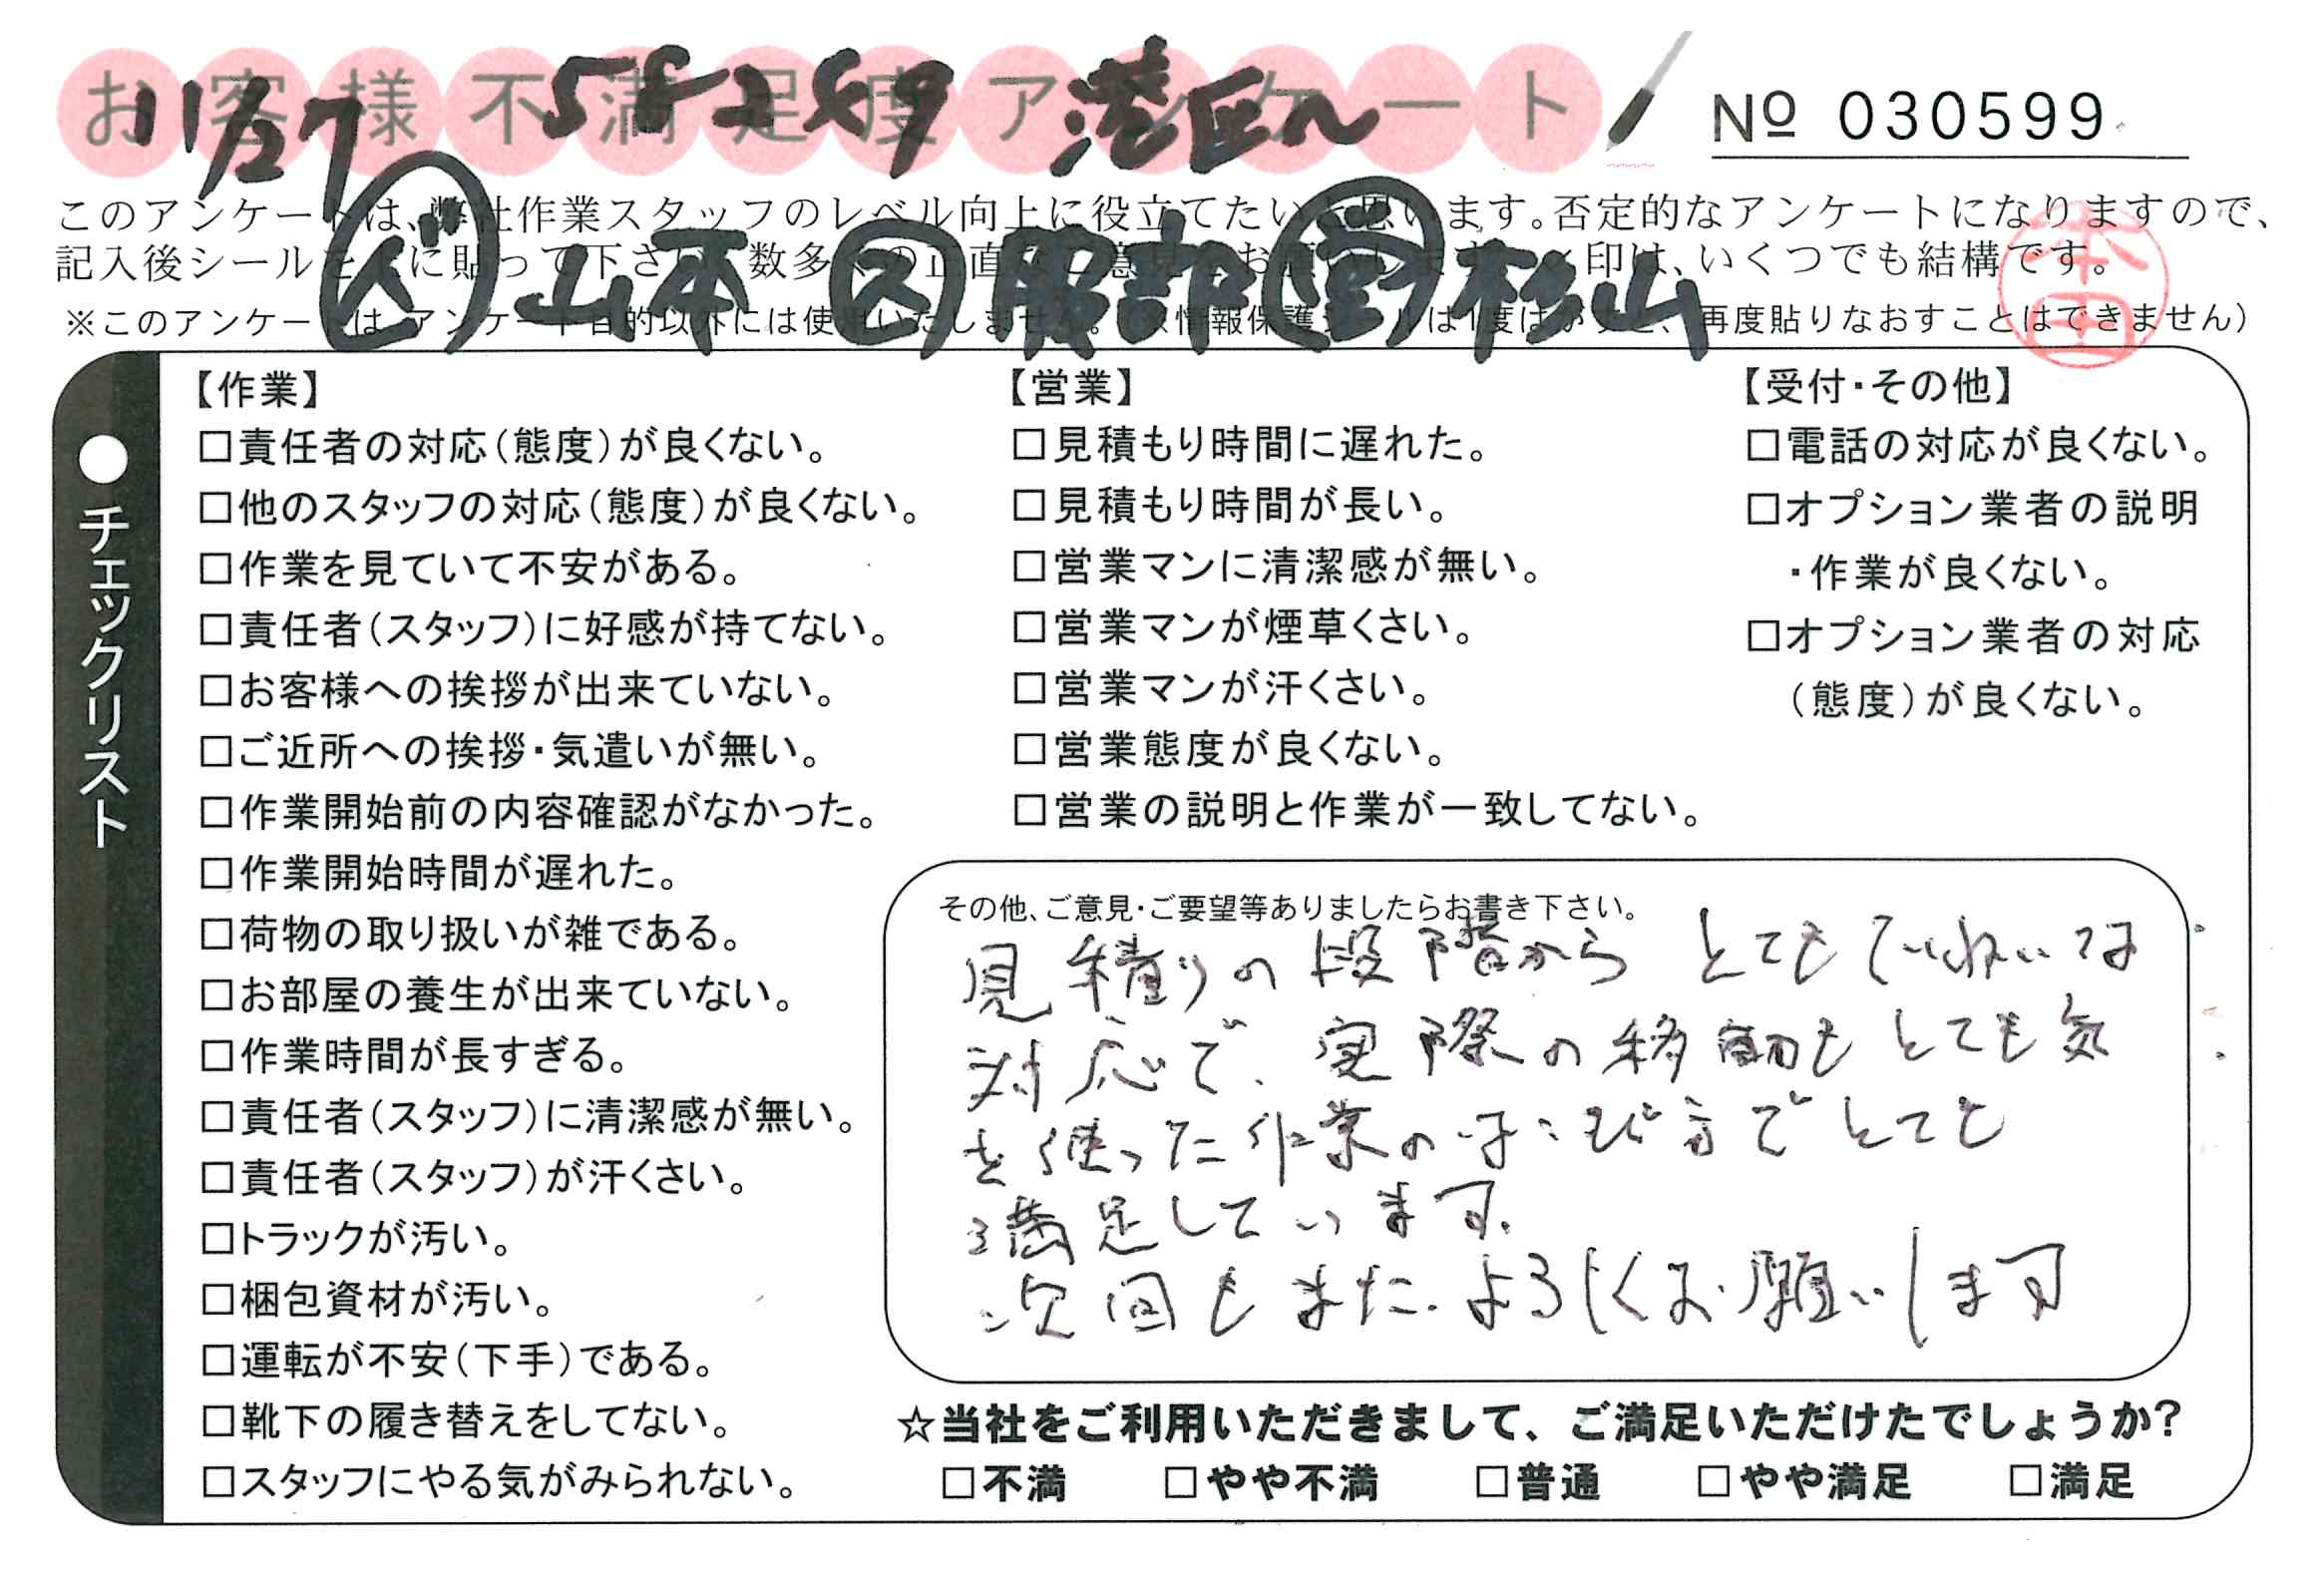 お客様不満足度アンケート
No 030599
11/27 58-249 港区へ
このアンケートは、弊社作業スタッフのレベル向上に役立てたいと思います。否定的なアンケートになりますので、
記入後シールを上に貼って下さい。数多くの正直なご意見をお願いします。✓印は、いくつでも結構です。
ビ 山本 ス 服部 営 杉山
本田
※このアンケートは、アンケート目的以外には使用いたしません。 情報保護シールは1度はがすと、再度貼りなおすことはできません）
●チェックリスト
【作業】
□責任者の対応（態度）が良くない。
□他のスタッフの対応（態度）が良くない。
□作業を見ていて不安がある。
□責任者（スタッフ）に好感が持てない。
□お客様への挨拶が出来ていない。
□ご近所への挨拶・気遣いが無い。
□作業開始前の内容確認がなかった。
□作業開始時間が遅れた。
□荷物の取り扱いが雑である。
□お部屋の養生が出来ていない。
□作業時間が長すぎる。
□責任者（スタッフ）に清潔感が無い。
□責任者（スタッフ）が汗くさい。
□トラックが汚い。
□梱包資材が汚い。
□運転が不安（下手）である。
□靴下の履き替えをしてない。
□スタッフにやる気がみられない。
【営業】
□見積もり時間に遅れた。
□見積もり時間が長い。
□営業マンに清潔感が無い。
□営業マンが煙草くさい。
□営業マンが汗くさい。
□営業態度が良くない。
□営業の説明と作業が一致してない。
【受付・その他】
□電話の対応が良くない。
□オプション業者の説明
・作業が良くない。
□オプション業者の対応
（態度）が良くない。
その他、ご意見・ご要望等ありましたらお書き下さい。
見積りの段階から とても ていねいな
対応で、実際の移動も とても気
を使った作業のはこび方で とても
満足しています。
次回もまた よろしくお願いします
☆当社をご利用いただきまして、ご満足いただけたでしょうか？
□不満 □やや不満 □普通 □やや満足 □満足